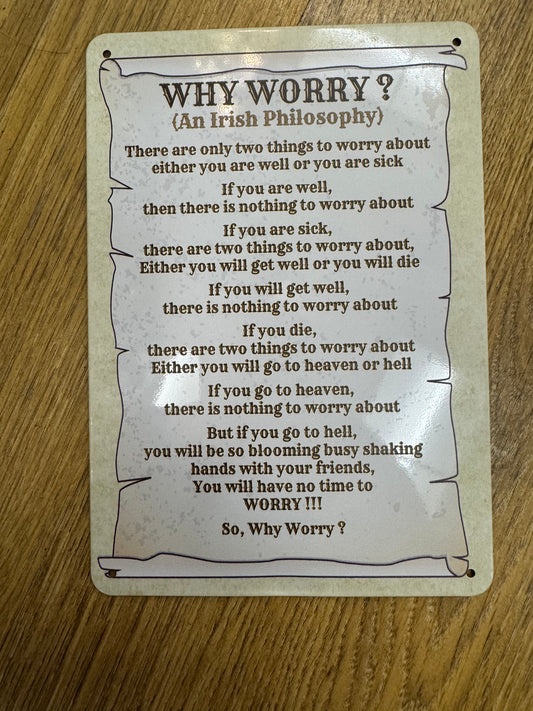 WHY WORRY ?
(An Irish Philosophy)
There are only two things to worry about
either you are well or you are sick
If you are well,
then there is nothing to worry about
If you are sick,
there are two things to worry about,
Either you will get well or you will die
If you will get well,
there is nothing to worry about
If you die,
there are two things to worry about
Either you will go to heaven or hell
If you go to heaven,
there is nothing to worry about
But if you go to hell,
you will be so blooming busy shaking
hands with your friends,
You will have no time to
WORRY !!!
So, Why Worry ?